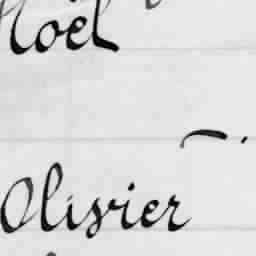 Noël
Olivier